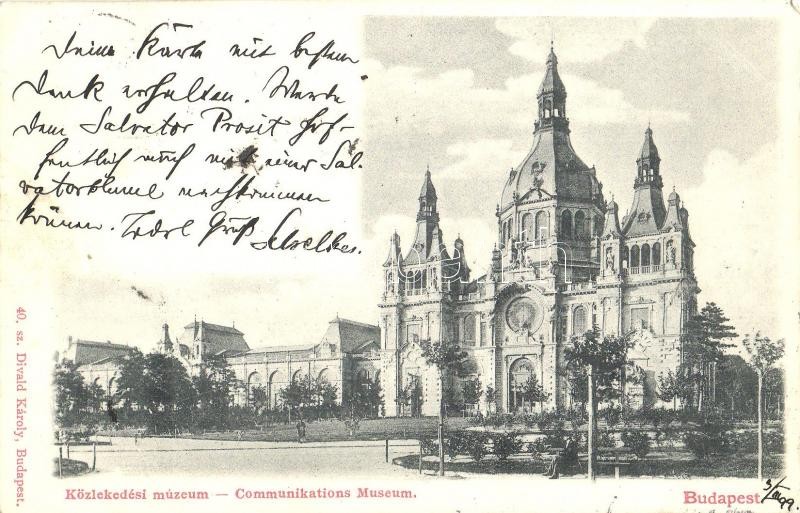 Deine Karte mit bestem
Dank erhalten. Werde
dem Salvator Prosit hof-
fentlich auch mit einer Sal-
vatorblume nachkommen
können. Gruß
40. sz. Divald Károly, Budapest.
Közlekedési múzeum — Communikations Museum.
Budapest